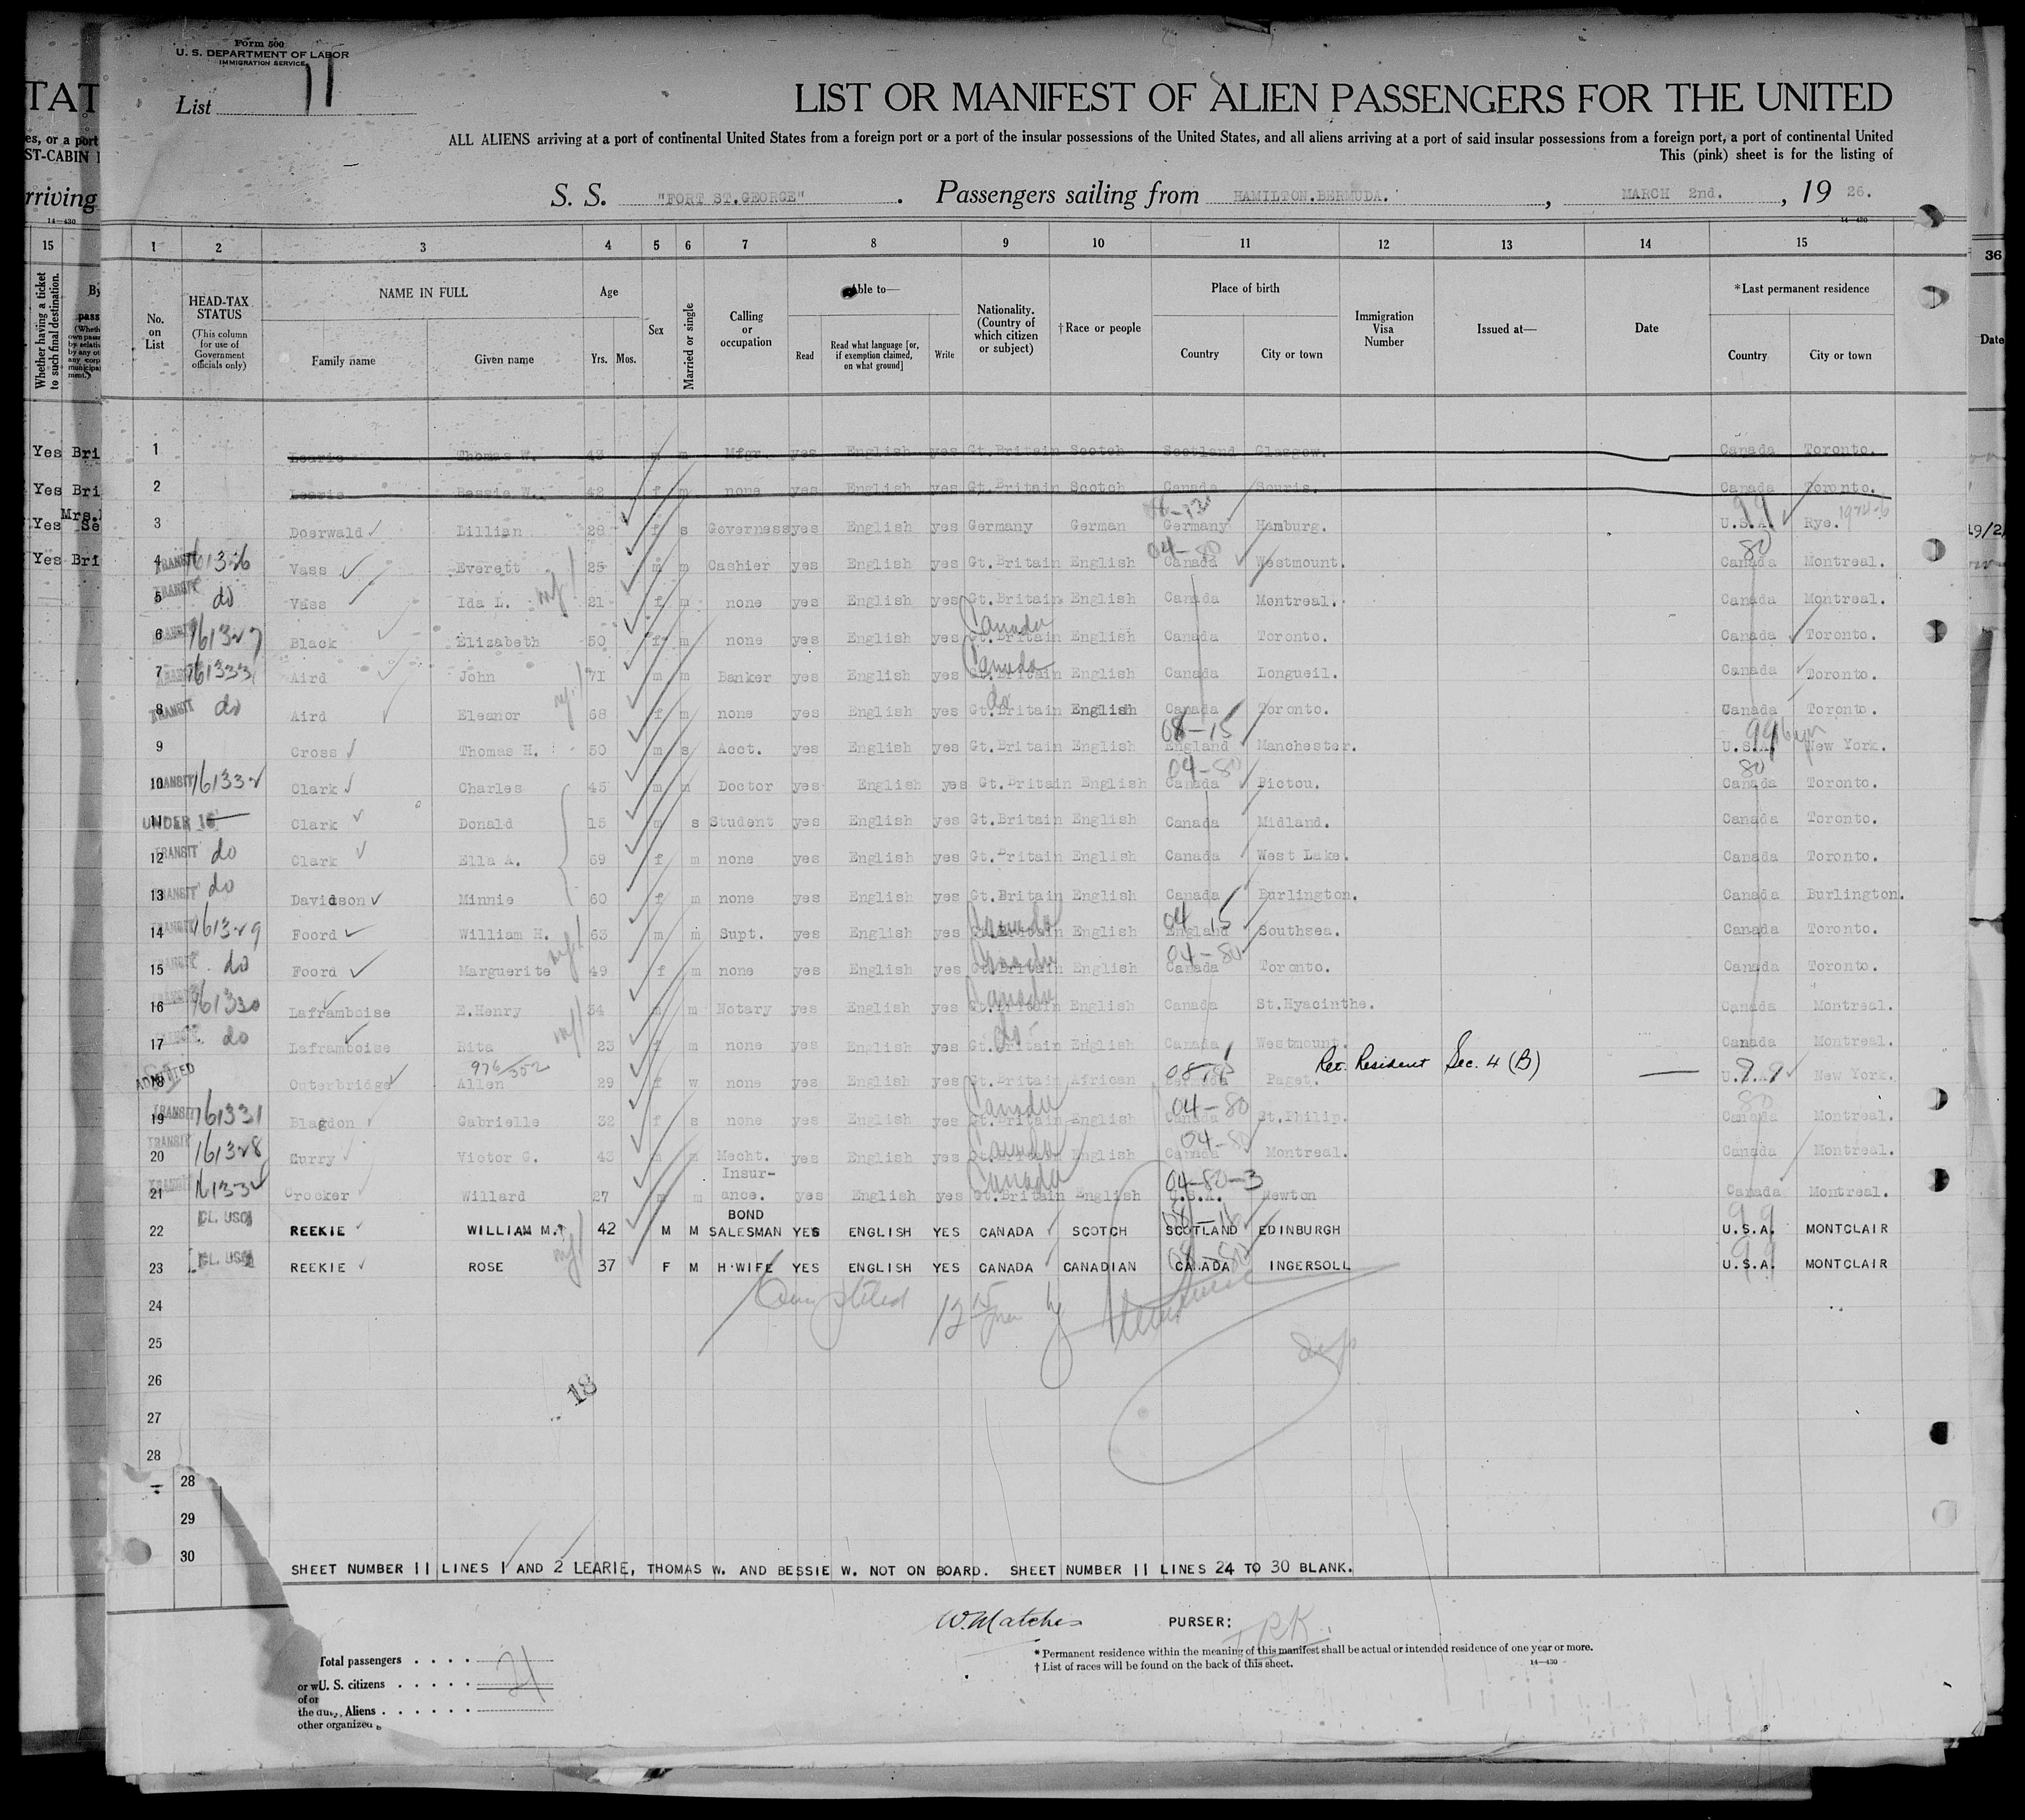 Form 500
U. S. DEPARTMENT OF LABOR
IMMIGRATION SERVICE
List 11
LIST OR MANIFEST OF ALIEN PASSENGERS FOR THE UNITED
ALL ALIENS arriving at a port of continental United States from a foreign port or a port of the insular possessions of the United States, and all aliens arriving at a port of said insular possessions from a foreign port, a port of continental United
This (pink) sheet is for the listing of
S. S. "FORT ST.GEORGE". Passengers sailing from HAMILTON.BERMUDA. , MARCH 2nd. , 19 26.
14—430
1 2 3 4 5 6 7 8 9 10 11 12 13 14 15
No. on List
HEAD-TAX STATUS (This column for use of Government officials only)
NAME IN FULL Family name Given name
Age Yrs. Mos.
Sex
Married or single
Calling or occupation
Able to— Read Read what language [or, if exemption claimed, on what ground] Write
Nationality. (Country of which citizen or subject)
†Race or people
Place of birth Country City or town
Immigration Visa Number
Issued at—
Date
*Last permanent residence Country City or town
1 Learie Thomas W. 43 m m Mfgr. yes English yes Gt.Britain Scotch Scotland Glasgow. Canada Toronto.
2 Learie Bessie W. 42 f m none yes English yes Gt.Britain Scotch Canada Souris. Canada Toronto.
3 Doerwald Lillian 28 f s Governess yes English yes Germany German Germany Hamburg. U.S.A. Rye.
4 TRANSIT 161326 Vass Everett 25 m m Cashier yes English yes Gt.Britain English 04-80 Canada Westmount. 80 Canada Montreal.
5 TRANSIT do Vass Ida L. 21 f m none yes English yes Gt.Britain English Canada Montreal. Canada Montreal.
6 TRANSIT 161327 Black Elizabeth 50 f m none yes English yes Canada Gt.Britain English Canada Toronto. Canada Toronto.
7 TRANSIT 161333 Aird John 71 m m Banker yes English yes Canada Gt.Britain English Canada Longueil. Canada Toronto.
8 TRANSIT do Aird Eleanor 68 f m none yes English yes do Gt.Britain English Canada Toronto. Canada Toronto.
9 Cross Thomas H. 50 m s Acct. yes English yes Gt.Britain English 08-15 England Manchester. 99 U.S.A. New York.
10 TRANSIT 161332 Clark Charles 45 m m Doctor yes English yes Gt.Britain English 04-80 Canada Pictou. 80 Canada Toronto.
11 UNDER 16 Clark Donald 15 m s Student yes English yes Gt.Britain English Canada Midland. Canada Toronto.
12 TRANSIT do Clark Ella A. 69 f m none yes English yes Gt.Britain English Canada West Lake. Canada Toronto.
13 TRANSIT do Davidson Minnie 60 f m none yes English yes Gt.Britain English Canada Burlington. Canada Burlington.
14 TRANSIT 161329 Foord William H. 63 m m Supt. yes English yes Canada Gt.Britain English 04 15 England Southsea. Canada Toronto.
15 TRANSIT do Foord Marguerite 49 f m none yes English yes Canada Gt.Britain English 04-80 Canada Toronto. Canada Toronto.
16 TRANSIT 161330 Laframboise E.Henry 34 m m Notary yes English yes Canada Gt.Britain English Canada St.Hyacinthe. Canada Montreal.
17 TRANSIT do Laframboise Rita 23 f m none yes English yes do Gt.Britain English Canada Westmount. Canada Montreal.
18 ADMITTED Outerbridge 976/352 Allen 29 f w none yes English yes Gt.Britain African Bermuda Paget. Ret. Resident Sec. 4 (B) — 99 U.S.A. New York.
19 TRANSIT 161331 Blagdon Gabrielle 32 f s none yes English yes Canada Gt.Britain English 04-80 Canada St.Philip. 80 Canada Montreal.
20 TRANSIT 161328 Curry Victor G. 43 m m Mecht. yes English yes Canada Gt.Britain English 04-80 Canada Montreal. Canada Montreal.
21 TRANSIT Crocker Willard 27 m m Insur-ance. yes English yes Canada Gt.Britain English 04-80-3 U.S.A. Newton Canada Montreal.
22 CL. USC REEKIE WILLIAM M. 42 M M BOND SALESMAN YES ENGLISH YES CANADA SCOTCH 08-16 SCOTLAND EDINBURGH 99 U.S.A. MONTCLAIR
23 CL. USC REEKIE ROSE 37 F M H·WIFE YES ENGLISH YES CANADA CANADIAN 08-80 CANADA INGERSOLL 99 U.S.A. MONTCLAIR
24
Completed
25
26
18
27
28
28
29
30
SHEET NUMBER 11 LINES 1 AND 2 LEARIE, THOMAS W. AND BESSIE W. NOT ON BOARD. SHEET NUMBER 11 LINES 24 TO 30 BLANK.
W. Matches PURSER:
* Permanent residence within the meaning of this manifest shall be actual or intended residence of one year or more.
† List of races will be found on the back of this sheet.
14—430
Total passengers . . . . 21
U. S. citizens . . . . .
Aliens . . . . . .
other organized